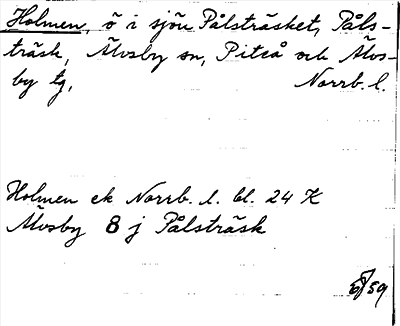 Holmen, ö i sjön Pålsträsket, Påls-
träsk, Älvsby sn, Piteå och Älvs-
by tg, Norrb. l.
Holmen ek Norrb. l. bl. 24 K
Älvsby 8 j Pålsträsk